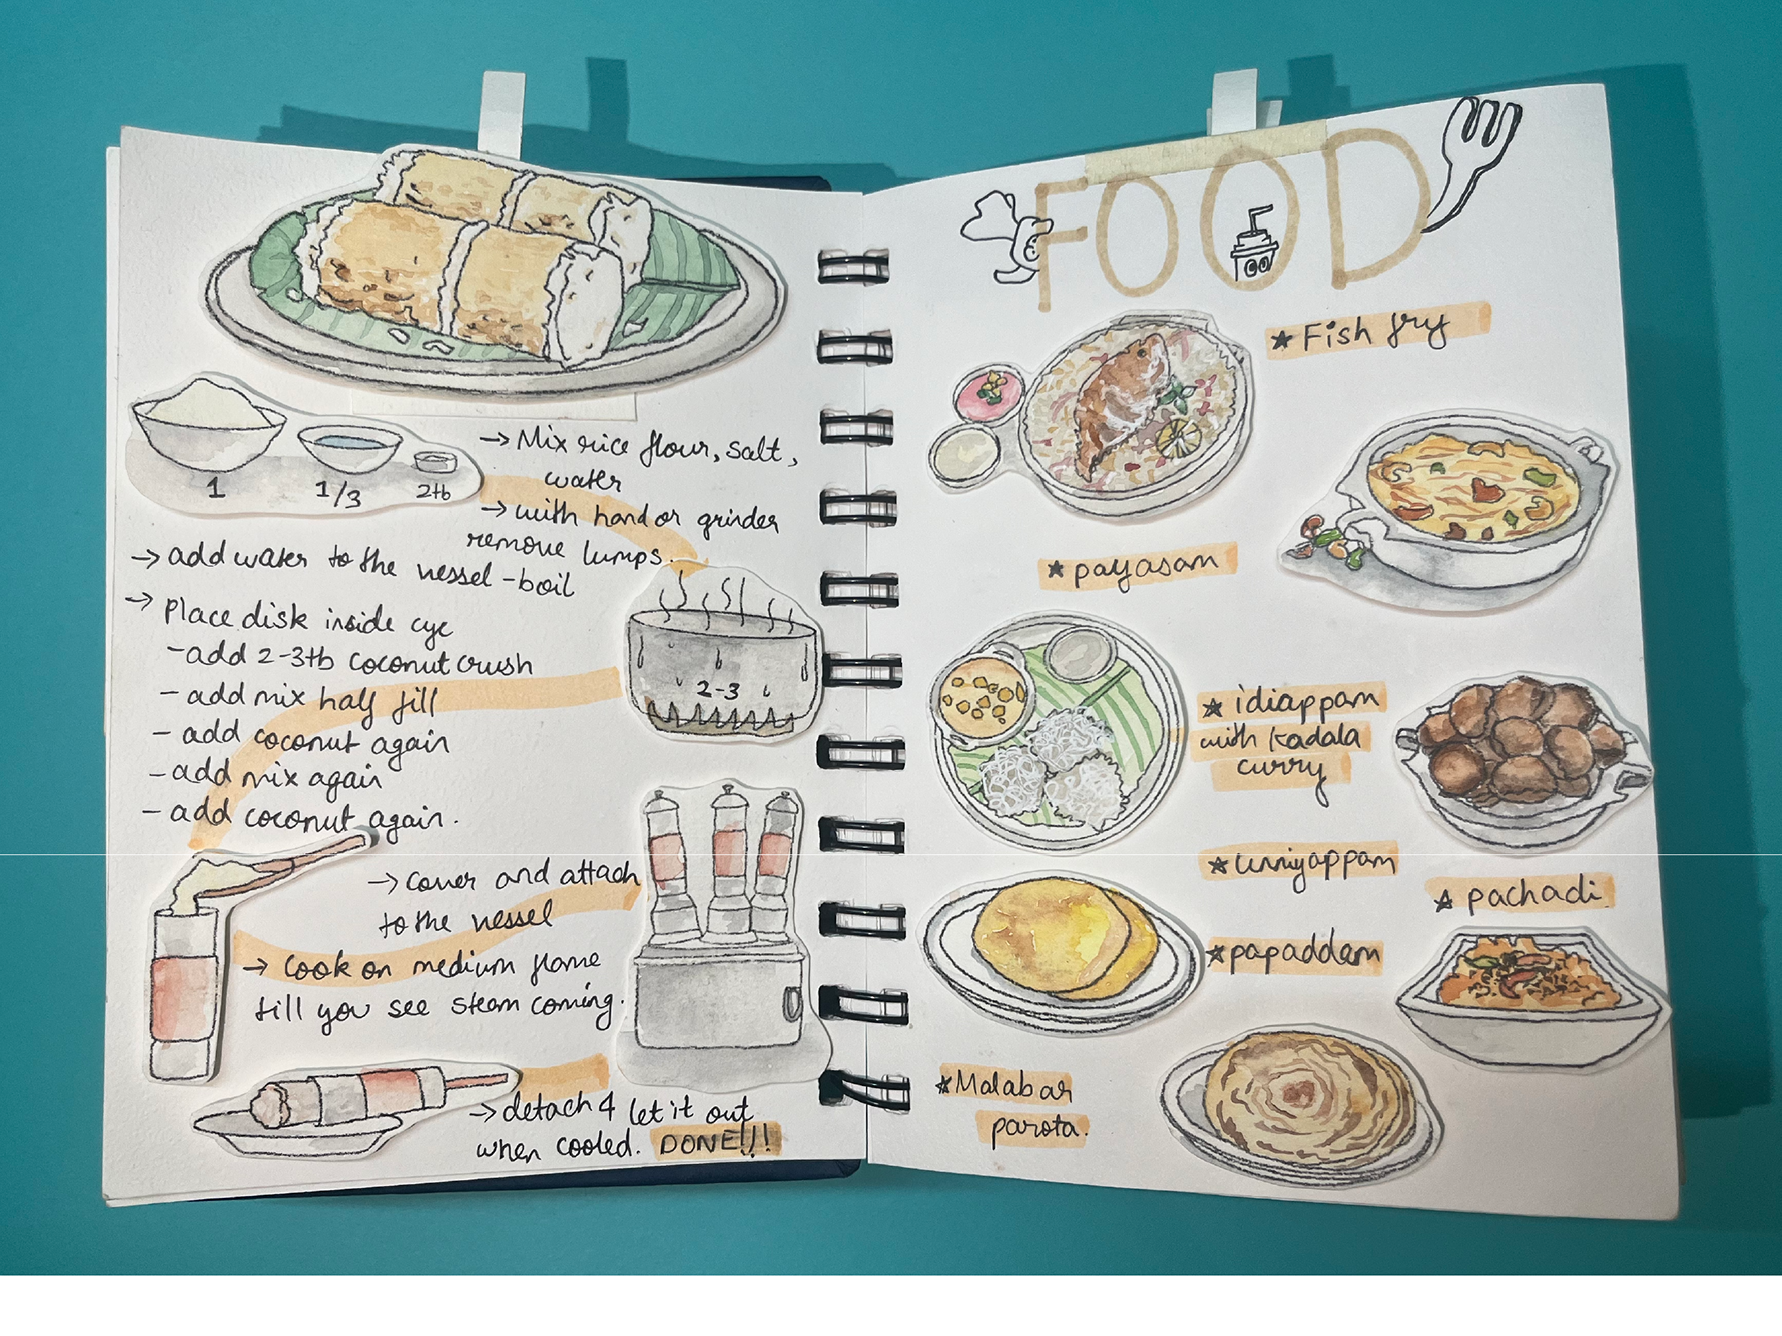 1
1/3
2tb
→ Mix rice flour, salt,
water
→ with hand or grinder
remove lumps.
→ add water to the vessel - boil
→ place disk inside cyc
- add 2-3tb coconut crush
- add mix half fill
- add coconut again
- add mix again
- add coconut again.
2-3
→ cover and attach
to the vessel
→ cook on medium flame
till you see steam coming.
→ detach & let it out
when cooled. DONE!!!
FOOD
★ Fish fry
★ payasam
★ idiappam
with Kadala
curry
★ unniyappam
★ pachadi
★ papaddam
★ Malabar
parota.